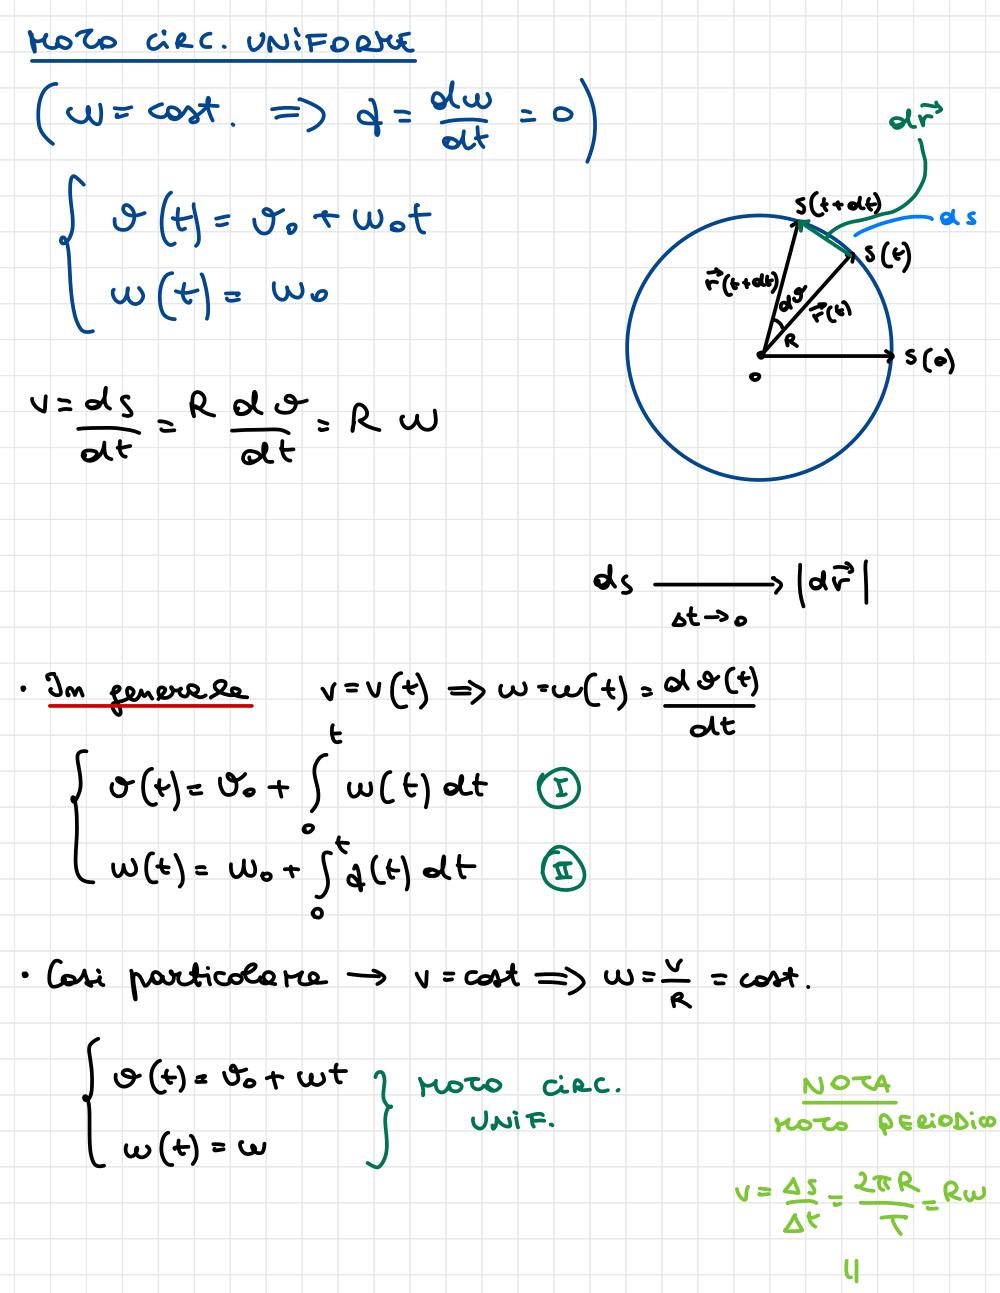 MOTO CIRC. UNIFORME
(ω = cost. ⇒ α = dω/dt = 0)
{ ϑ(t) = ϑ₀ + ω₀t
ω(t) = ω₀
v = ds/dt = R dϑ/dt = R ω
dr⃗
S(t+dt)
ds
S(t)
r⃗(t+dt)
dϑ
r⃗(t)
R
S(0)
O
ds → |dr⃗|
Δt→0
· In generale v = v(t) ⇒ ω = ω(t) = dϑ(t)/dt
{ ϑ(t) = ϑ₀ + ∫₀ᵗ ω(t) dt I
ω(t) = ω₀ + ∫₀ᵗ α(t) dt II
· Casi particolare → v = cost ⇒ ω = v/R = cost.
{ ϑ(t) = ϑ₀ + ωt
ω(t) = ω
} MOTO CIRC.
UNIF.
NOTA
MOTO PERIODICO
v = Δs/Δt = 2πR/T = Rω